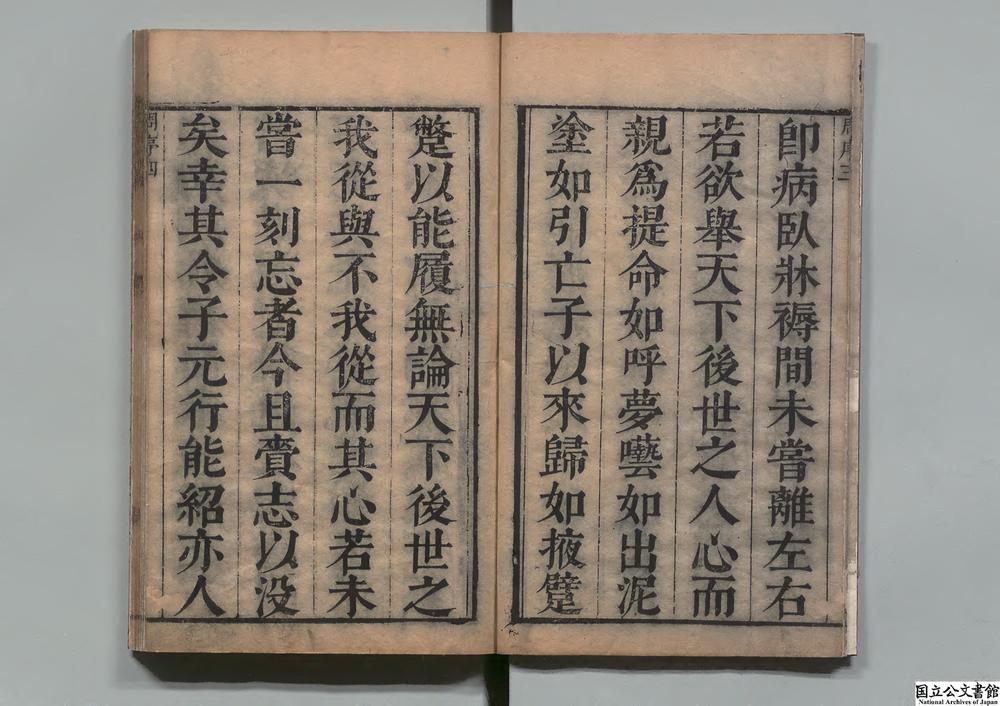 卽病臥牀褥間未嘗離左右
若欲舉天下後世之人心而
親爲提命如呼夢囈如出泥
塗如引亡子以來歸如掖躄
躄以能履無論天下後世之
我從與不我從而其心若未
當一刻忘者今且賫志以没
矣幸其令子元行能紹亦人
周序四
国立公文書館
National Archives of Japan